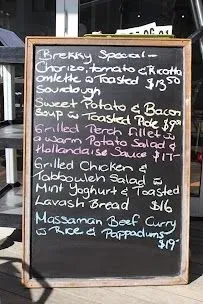 Brekky Special -
Chorizo, tomato & Ricotta
omlette w Toasted $13.50
Sourdough
Sweet Potato & Bacon
Soup w Toasted Pide $9
Grilled Perch Fillet w
a warm Potato Salad &
Hollandaise Sauce $17-
Grilled Chicken &
Tabbouleh Salad w
Mint Yoghurt & Toasted
Lavash Bread $16
Massaman Beef Curry
w Rice & Pappadums
$19-